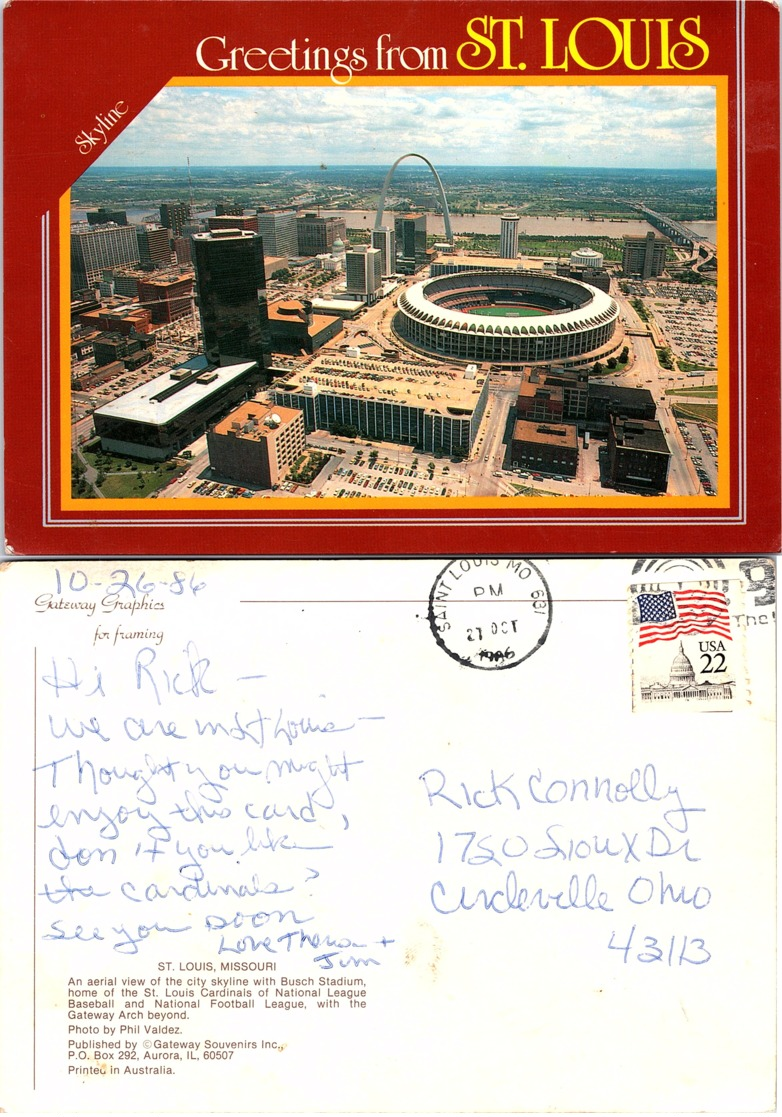 Greetings from ST. LOUIS
Skyline
10-26-86
Gateway Graphics
for framing
SAINT LOUIS MO 631
PM
27 OCT
1986
USA
22
Hi Rick -
We are in St Louis -
Thought you might
enjoy this card,
don't you like
the cardinals?
See you soon
Love Theresa +
Jim
Rick Connolly
1750 Sioux Dr
Circleville Ohio
43113
ST. LOUIS, MISSOURI
An aerial view of the city skyline with Busch Stadium,
home of the St. Louis Cardinals of National League
Baseball and National Football League, with the
Gateway Arch beyond.
Photo by Phil Valdez.
Published by ©Gateway Souvenirs Inc.,
P.O. Box 292, Aurora, IL, 60507
Printed in Australia.